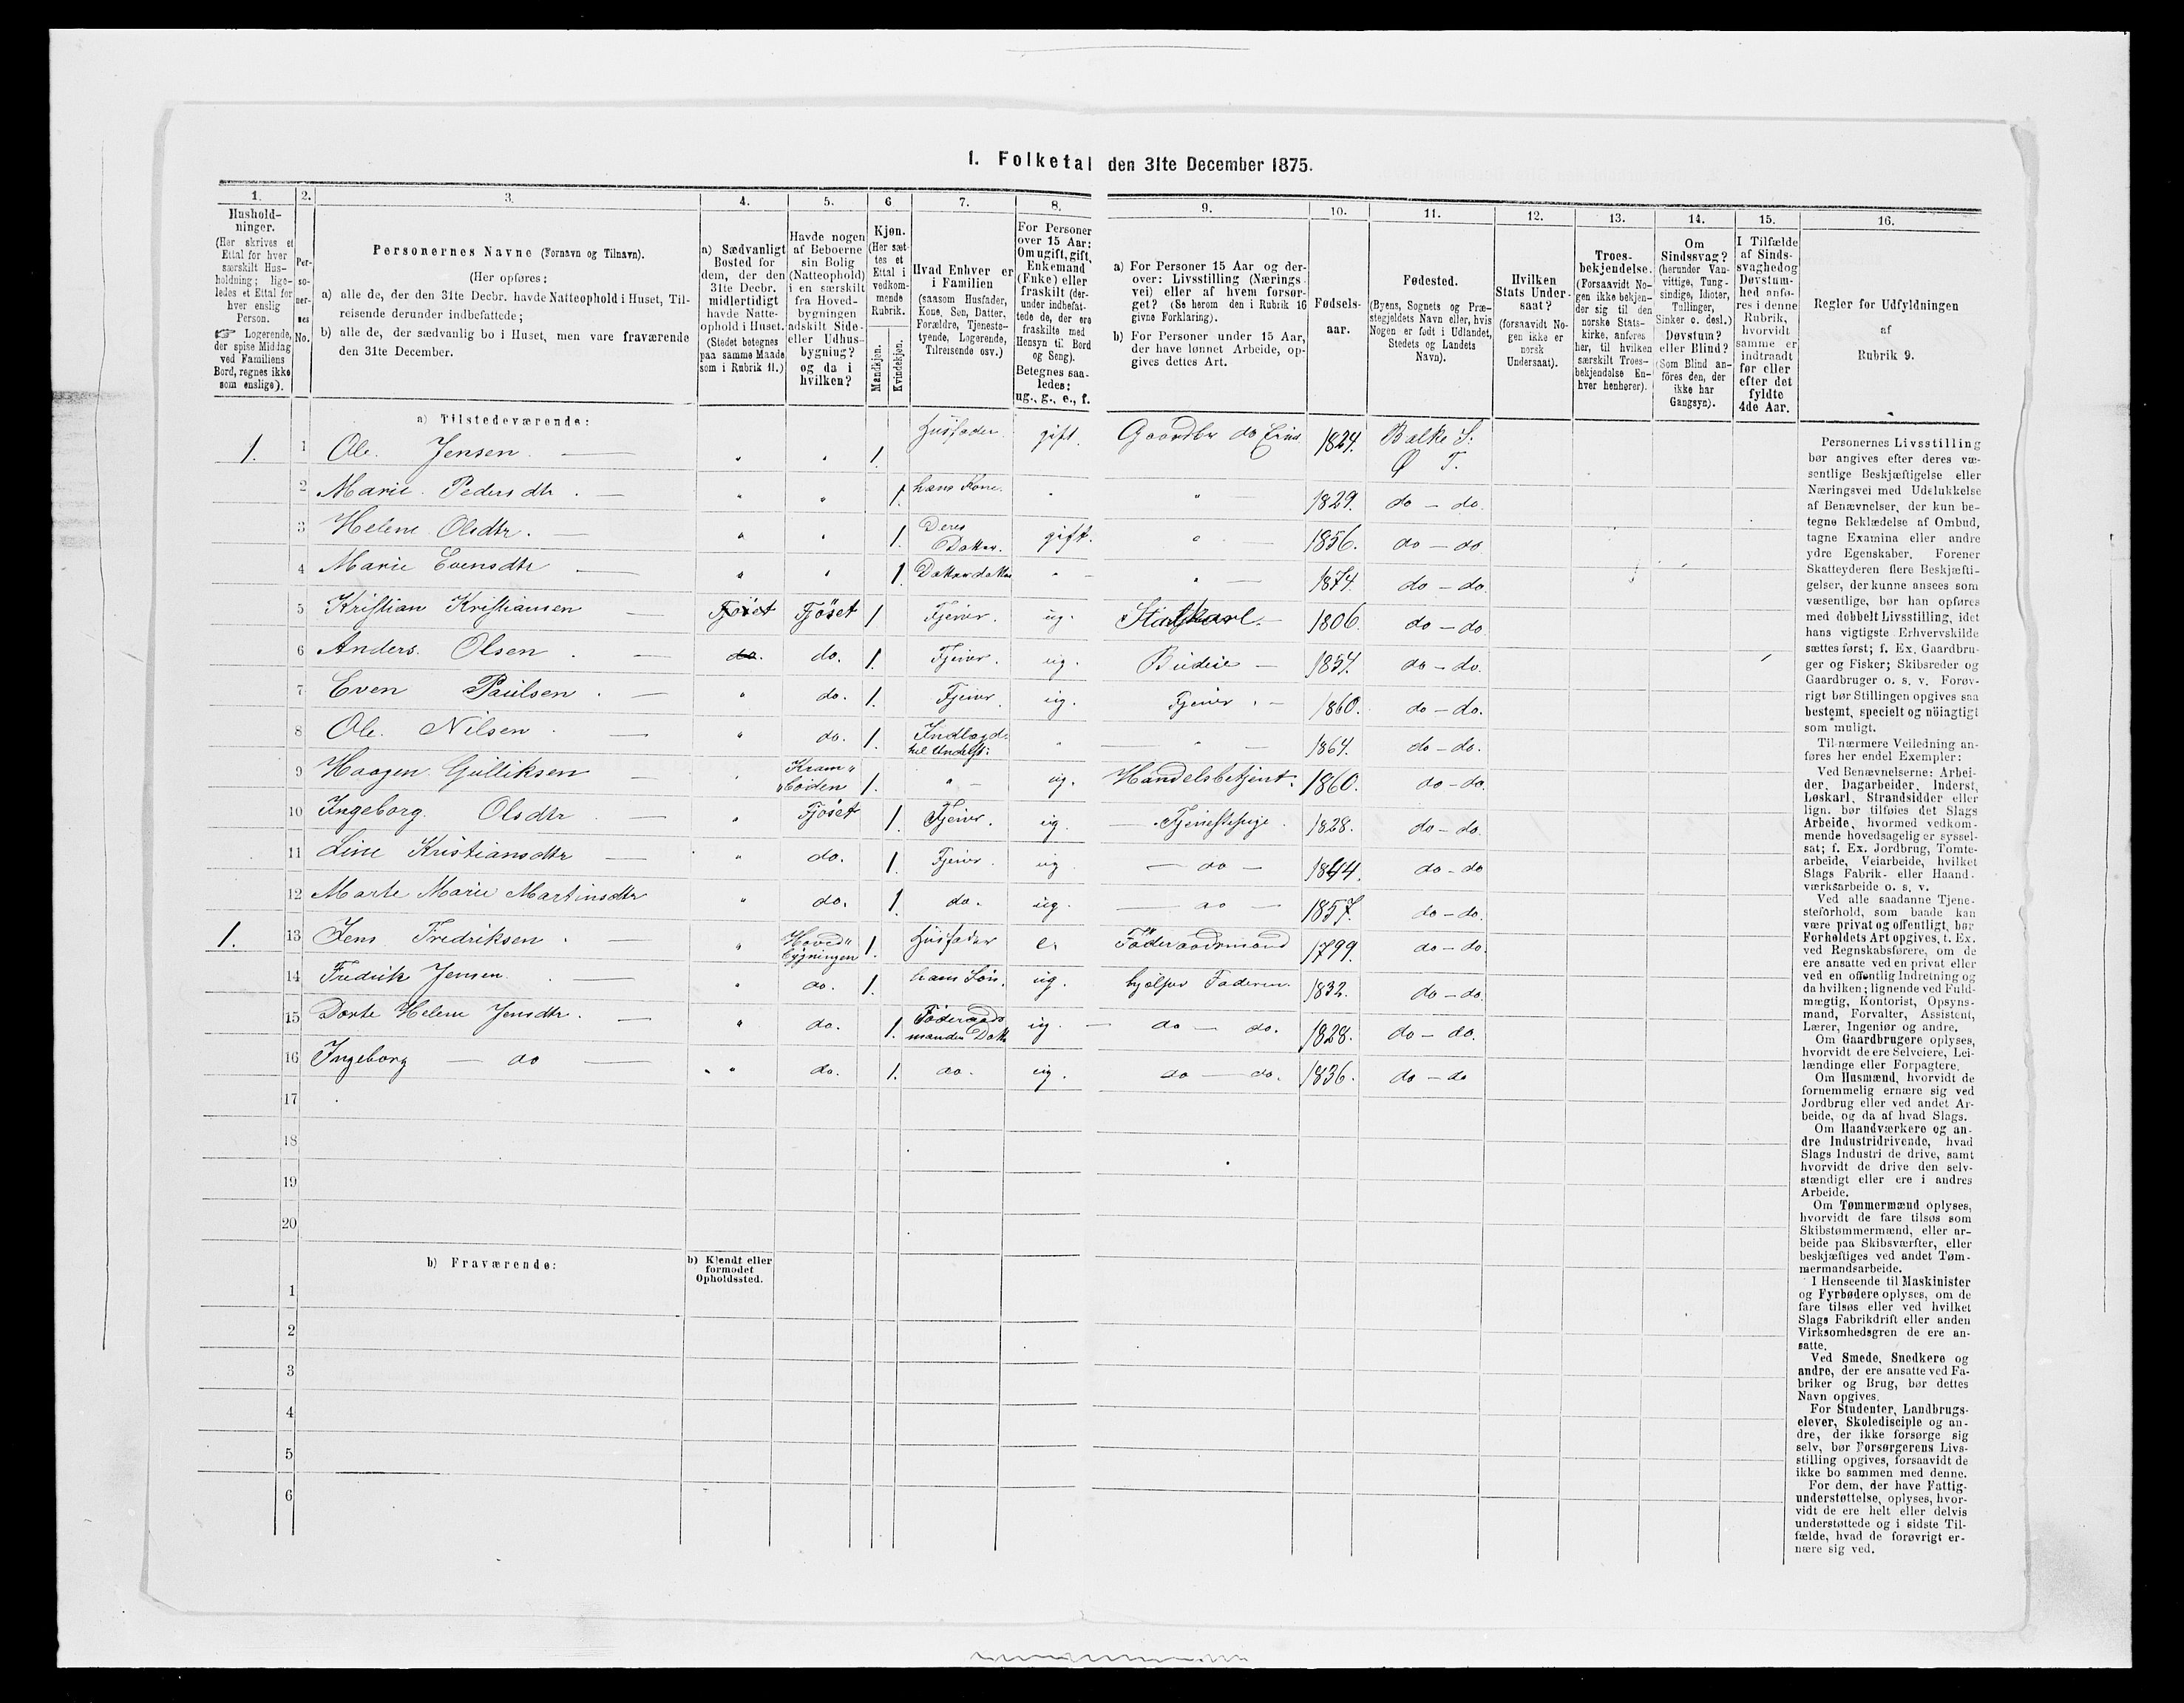 1. Folketal den 31te December 1875.
1. 2. 3. 4. 5. 6 7. 8. 9. 10. 11. 12. 13. 14. 15. 16.
Hushold-
ninger.
(Her skrives et
Ettal for hver
særskilt Hus-
holdning; lige-
ledes et Ettal for
hver enslig
Person.
☞ Logerende,
der spise Middag
ved Familiens
Bord, regnes ikke
som enslige).
Per-
so-
ner-
nes
No.
Personernes Navne (Fornavn og Tilnavn).
(Her opføres:
a) alle de, der den 31te Decbr. havde Natteophold i Huset, Til-
reisende derunder indbefattede;
b) alle de, der sædvanlig bo i Huset, men vare fraværende
den 31te December.
a) Sædvanligt
Bosted for
dem, der den
31te Decbr.
midlertidigt
havde Natte-
ophold i Huset.
(Stedet betegnes
paa samme Maade
som i Rubrik 11.)
Havde nogen
af Beboerne
sin Bolig
(Natteophold)
i en særskilt
fra Hoved-
bygningen
adskilt Side-
eller Udhus-
bygning?
og da i
hvilken?
Kjøn.
(Her sæt-
tes et
Ettal i
vedkom-
mende
Rubrik.
Mandkjøn.
Kvindekjøn.
Hvad Enhver er
i Familien
(saasom Husfader,
Kone, Søn, Datter,
Forældre, Tjeneste-
tyende, Logerende,
Tilreisende osv.)
For Personer
over 15 Aar:
Om ugift, gift,
Enkemand
(Enke) eller
fraskilt (der-
under indbefat-
tede de, der ere
fraskilte med
Hensyn til Bord
og Seng).
Betegnes saa-
ledes:
ug., g., e., f.
a) For Personer 15 Aar og der-
over: Livsstilling (Nærings-
vei) eller af hvem forsør-
get? (Se herom den i Rubrik 16
givne Forklaring).
b) For Personer under 15 Aar,
der have lønnet Arbeide, op-
gives dettes Art.
Fødsels-
aar.
Fødested.
(Byens, Sognets og Præ-
stegjeldets Navn eller, hvis
Nogen er født i Udlandet,
Stedets og Landets
Navn).
Hvilken
Stats Under-
saat?
(forsaavidt No-
gen ikke er
norsk
Undersaat).
Troes-
bekjendelse.
(Forsaavidt No-
gen ikke bekjen-
der sig til den
norske Stats-
kirke, anføres
her, til hvilken
særskilt Troes-
bekjendelse En-
hver henhører).
Om
Sindssvag?
(herunder Van-
vittige, Tung-
sindige, Idioter,
Tullinger,
Sinker o. desl.)
Døvstum?
eller Blind?
(Som Blind an-
føres den, der
ikke har
Gangsyn).
I Tilfælde
af Sinds-
svaghed og
Døvstum-
hed anfø-
res i denne
Rubrik,
hvorvidt
samme er
indtraadt
før eller
efter det
fyldte
4de Aar.
Regler for Udfyldningen
af
Rubrik 9.
a) Tilstedeværende:
1. 1 Ole Jensen " " 1. Husfader gift. Gaardbr 1824. Balke S.
Ø T.
2 Marie Pedersdtr " " 1. hans Kone. " " 1829. do - do.
3 Helene Olsdtr. " " 1. Deres
Datter. gift. " 1856. do - do
4 Marie Evensdtr " " 1. Datterdatter " " 1874. do - do.
5 Kristian Kristiansen Fjöset Fjöset 1 Tjener. ug. Staldkarl. 1806. do - do
6 Anders Olsen do. do. 1. Tjener. ug. Budeie 1854. do - do.
7 Even Paulsen " do. 1. Tjener. ug. Tjener 1860. do - do.
8 Ole Nilsen " do. 1. Indlagd
til Underst: " " 1864. do - do.
9 Haagen Gulliksen " Kram"
boden 1. " ug. Handelsbetjent. 1860. do - do.
10 Ingeborg Olsdtr " Fjöset 1. Tjener. ug. Tjenestepige. 1828. do - do.
11 Line Kristiansdtr " do. 1. Tjener. ug do 1844. do - do
12 Marte Marie Martinsdtr " do. 1. do. ug. do 1857. do - do.
1. 13 Jens Fredriksen " Hoved"
bygningen 1. Husfader e. Föderaadsmand 1799. do - do.
14 Fredrik Jensen " do. 1. hans Sön. ug. hjelper Faderen. 1832. do - do.
15 Dorte Helene Jensdtr. " do. 1. Föderaads
mandens Datt ug. do - do. 1828. do - do.
16 Ingeborg do " do. 1. do. ug. do - do. 1836. do - do
17
18
19
20
b) Fraværende: b) Kjendt eller
formodet
Opholdssted.
1
2
3
4
5
6
Personernes Livsstilling
bør angives efter deres væ-
sentlige Beskjæftigelse eller
Næringsvei med Udelukkelse
af Benævnelser, der kun be-
tegne Beklædelse af Ombud,
tagne Examina eller andre
ydre Egenskaber. Forener
Skatteyderen flere Beskjæfti-
gelser, der kunne ansees som
væsentlige, bør han opføres
med dobbelt Livsstilling, idet
hans vigtigste Erhvervskilde
sættes først; f. Ex. Gaardbru-
ger og Fisker; Skibsreder og
Gaardbruger o. s. v. Forøv-
rigt bør Stillingen opgives saa
bestemt, specielt og nöiagtigt
som muligt.
Til nærmere Veiledning an-
føres her endel Exempler:
Ved Benævnelserne: Arbei-
der, Dagarbeider, Inderst,
Løskarl, Strandsidder eller
lign. bør tilføies det Slags
Arbeide, hvormed vedkom-
mende hovedsagelig er syssel-
sat; f. Ex. Jordbrug, Tomte-
arbeide, Veiarbeide, hvilket
Slags Fabrik- eller Haand-
værksarbeide o. s. v.
Ved alle saadanne Tjene-
steforhold, som baade kan
være privat og offentligt, bør
Forholdets Art opgives, t. Ex.
ved Regnskabsførere, om de
ere ansatte ved en privat eller
ved en offentlig Indretning og
da hvilken; lignende ved Fuld-
mægtig, Kontorist, Opsyns-
mand, Forvalter, Assistent,
Lærer, Ingeniør og andre.
Om Gaardbrugere oplyses,
hvorvidt de ere Selveiere, Lei-
lændinge eller Forpagtere.
Om Husmænd, hvorvidt de
fornemmelig ernære sig ved
Jordbrug eller ved andet Ar-
beide, og da af hvad Slags.
Om Haandværkere og an-
dre Industridrivende, hvad
Slags Industri de drive, samt
hvorvidt de drive den selv-
stændigt eller ere i andres
Arbeide.
Om Tømmermænd oplyses,
hvorvidt de fare tilsøs som
Skibstømmermænd, eller ar-
beide paa Skibsværfter, eller
beskjæftiges ved andet Tøm-
mermandsarbeide.
I Henseende til Maskinister
og Fyrbødere oplyses, om de
fare tilsøs eller ved hvilket
Slags Fabrikdrift eller anden
Virksomhedsgren de ere an-
satte.
Ved Smede, Snedkere og
andre, der ere ansatte ved Fa-
briker og Brug, bør dettes
Navn opgives.
For Studenter, Landbrugs-
elever, Skoledisciple og an-
dre, der ikke forsørge sig
selv, bør Forsørgerens Livs-
stilling opgives, forsaavidt de
ikke bo sammen med denne.
For dem, der have Fattig-
understøttelse, oplyses, hvor-
vidt de ere helt eller delvis
understøttede og i sidste Til-
fælde, hvad de forøvrigt er-
nære sig ved.